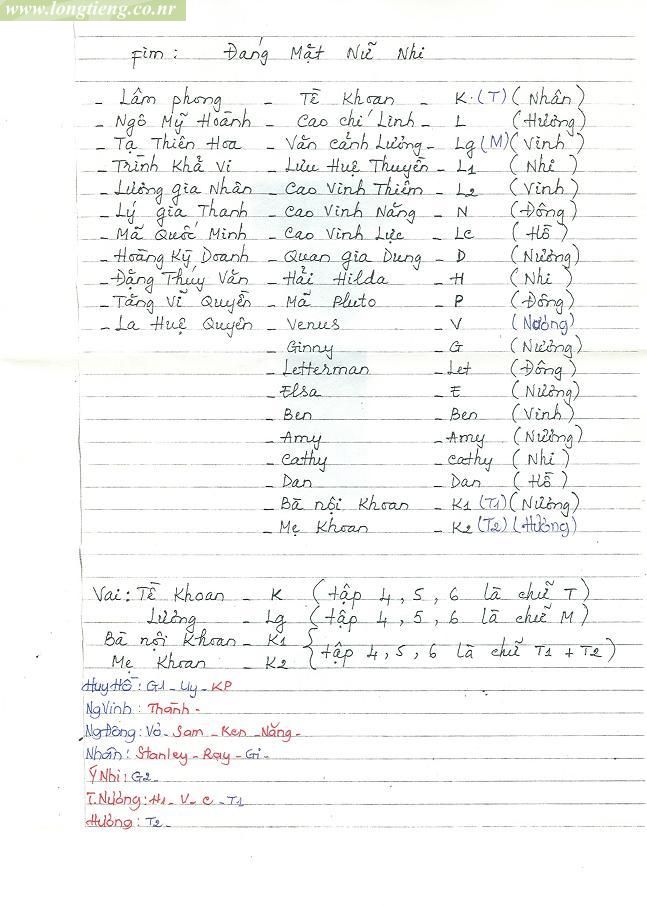 www.longtieng.co.nr
Fim: Đấng Mặt Nữ Nhi
- Lâm phong - Tề Khoan - K.(T) (Nhân)
- Ngô Mỹ Hoành - Cao chí Linh - L (Hương)
- Tạ Thiên Hoa - Văn cảnh Lương - Lg (M) (Vinh)
- Trịnh Khả Vi - Lưu Huệ Thuyền - L1 (Nhi)
- Lương gia Nhân - Cao Vinh Thiêm - L2 (Vinh)
- Lý gia Thanh - Cao Vinh Năng - N (Đông)
- Mã Quốc Minh - Cao Vinh Lực - Lc (Hồ)
- Hoàng Kỳ Doanh - Quan gia Dung - D (Nương)
- Đặng Thúy Văn - Hải Hilda - H (Nhi)
- Tăng Vĩ Quyền - Mã Pluto - P (Đông)
- La Huệ Quyên - Venus - V (Nương)
- Ginny - G (Nương)
- Letterman - Let (Đông)
- Elsa - E (Nương)
- Ben - Ben (Vinh)
- Amy - Amy (Nương)
- Cathy - Cathy (Nhi)
- Dan - Dan (Hồ)
- Bà nội Khoan - K1 (T1) (Nương)
- Mẹ Khoan - K2 (T2) (Hương)
Vai: Tề Khoan - K (tập 4, 5, 6 là chữ T)
Lương - Lg (tập 4, 5, 6 là chữ M)
Bà nội Khoan - K1 {tập 4, 5, 6 là chữ T1 + T2)
Mẹ Khoan - K2
Huy Hồ: G1 - Uy - KP
Ng Vinh: Thành -
Ng Đông: Vỏ - Sam - Ken - Năng -
Nhân: Stanley - Ray - Gi -
Ý Nhi: G2 -
T. Nương: H1 - V - C - T1
Hương: T2 -